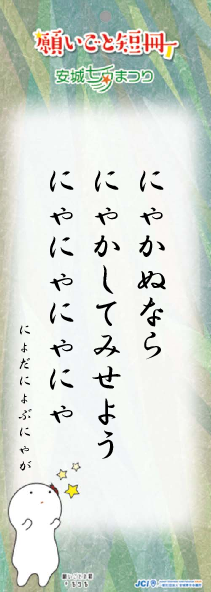 願いごと短冊
安城七夕まつり
にゃかぬなら
にゃかしてみせよう
にゃにゃにゃにゃ
にょだにょぶにゃが
JCI